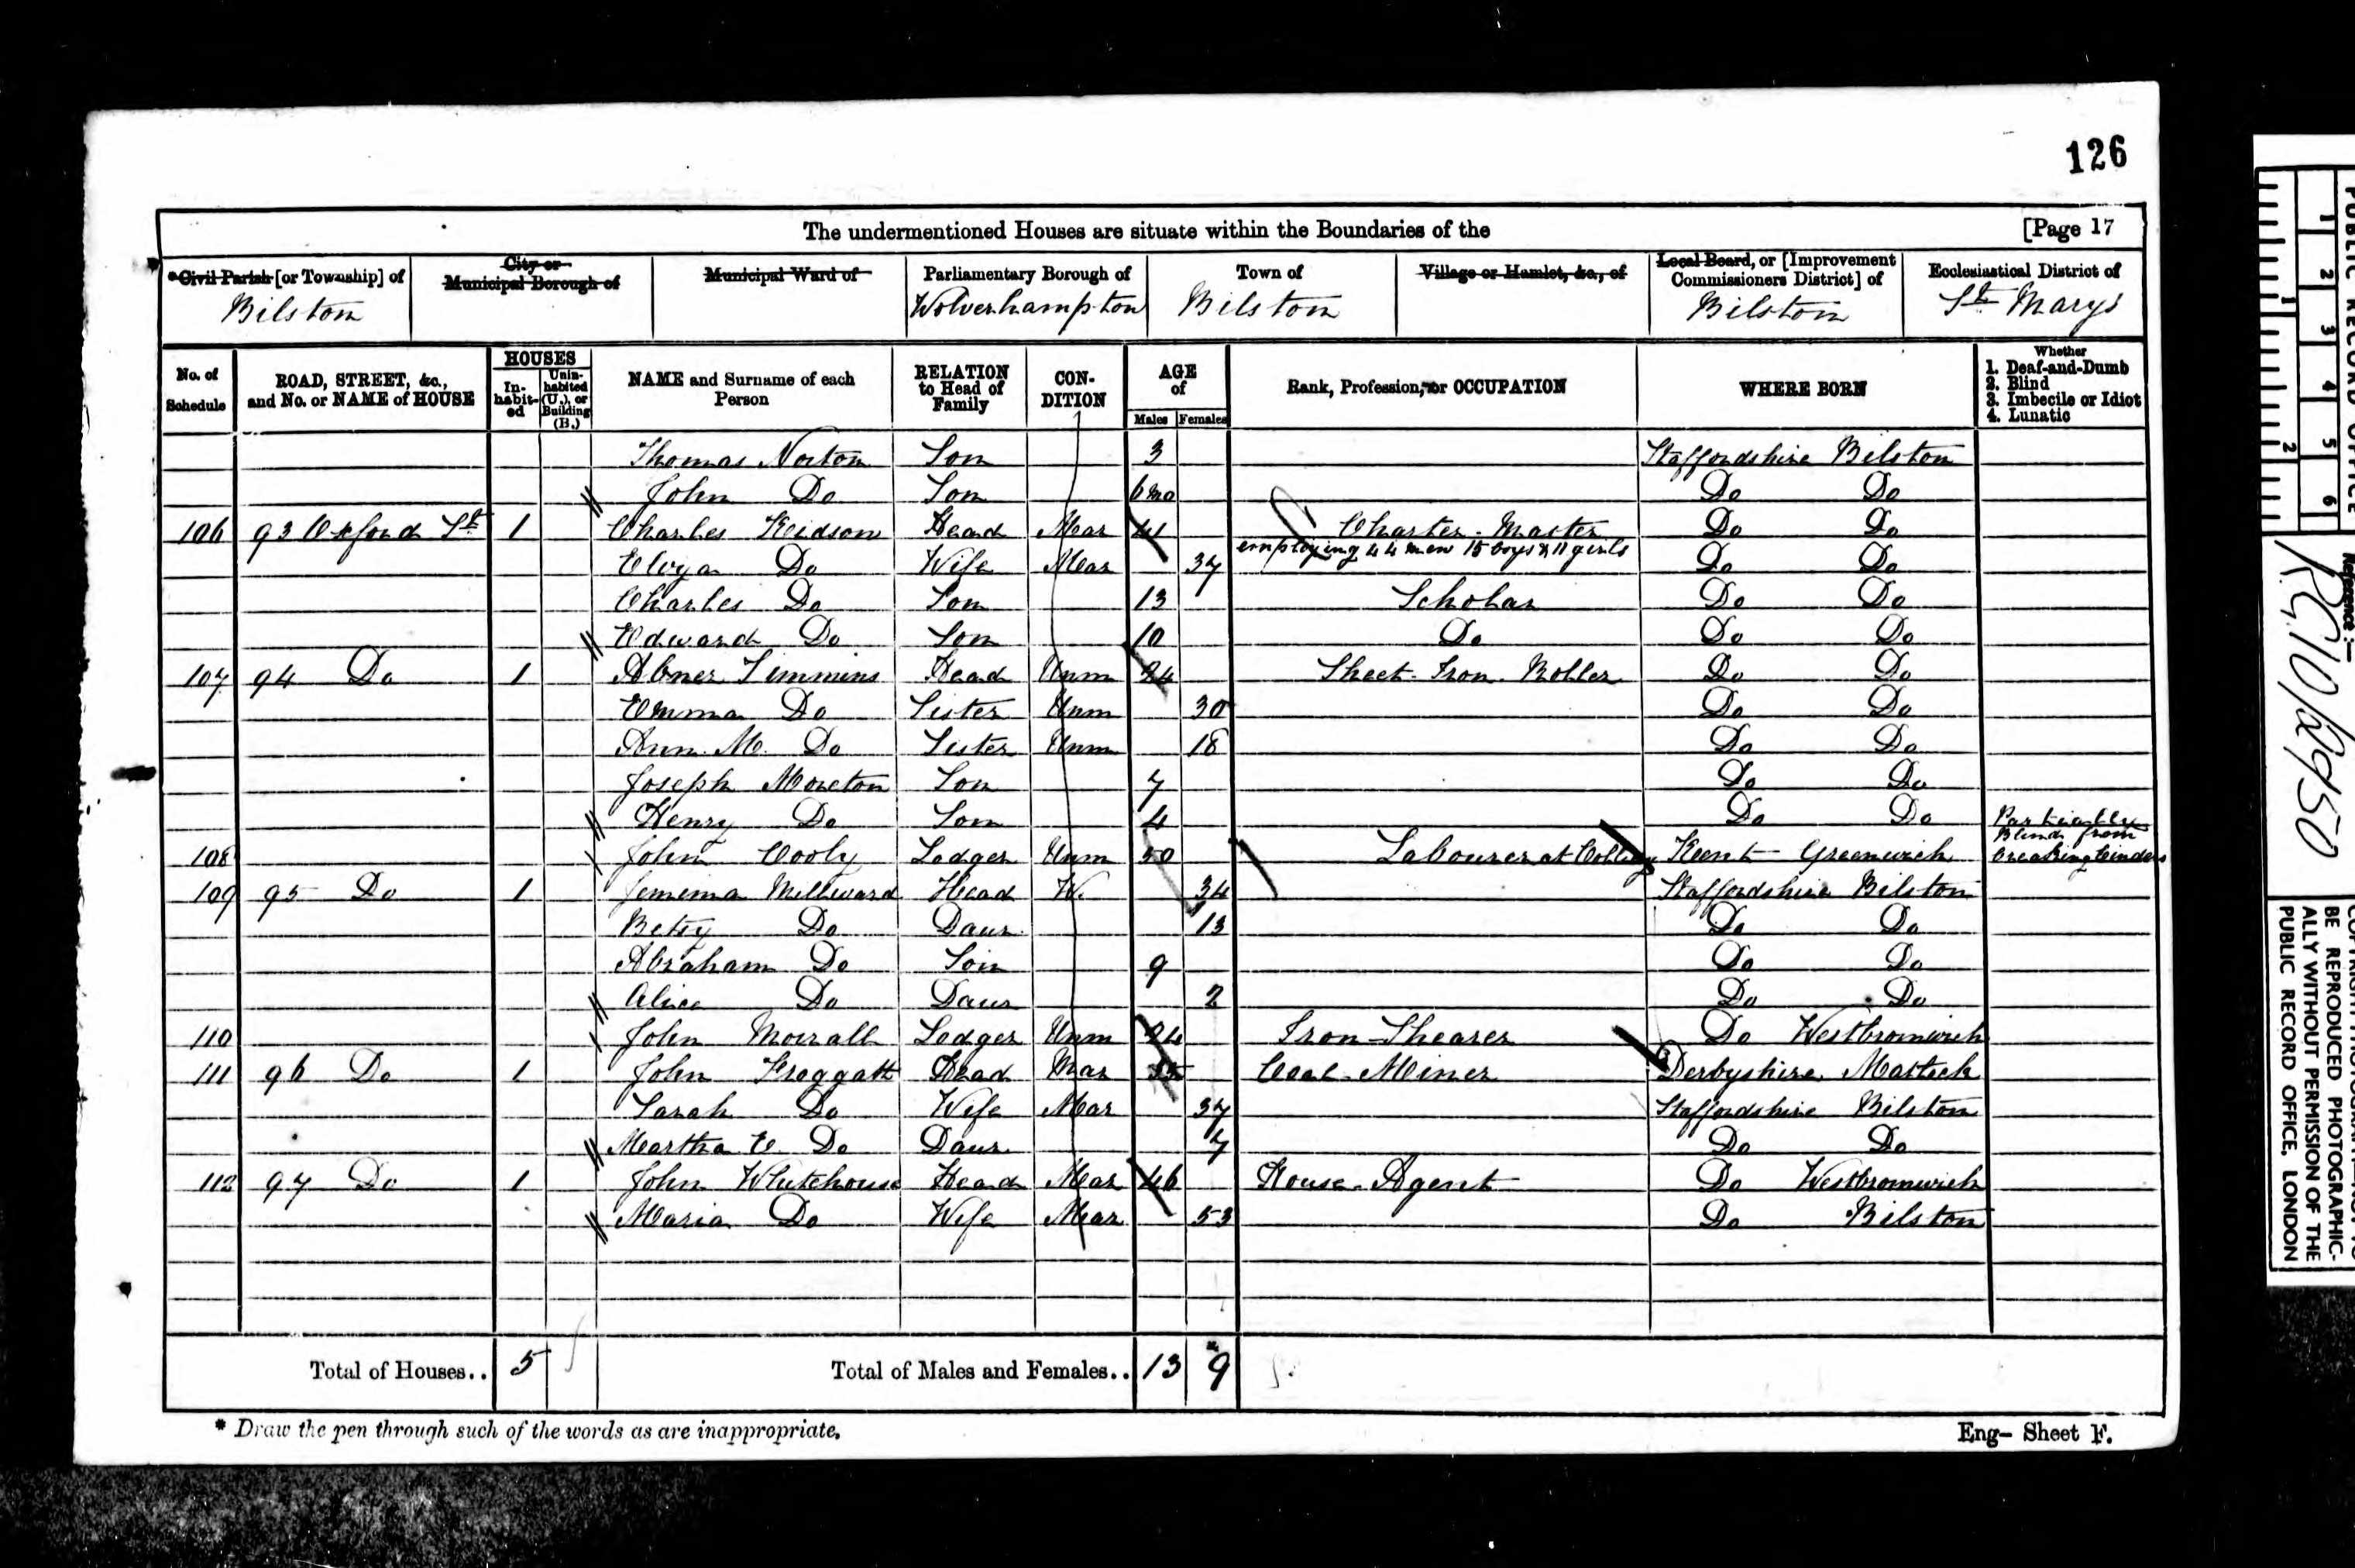 126
The undermentioned Houses are situate within the Boundaries of the [Page 17
*Civil Parish [or Township] of Bilston
City or Municipal Borough of
Municipal Ward of
Parliamentary Borough of Wolverhampton
Town of Bilston
Village or Hamlet, &c., of
Local Board, or [Improvement Commissioners District] of Bilston
Ecclesiastical District of St Marys
No. of Schedule
ROAD, STREET, &c., and No. or NAME of HOUSE
HOUSES
In-habit-ed
Unin-habited (U.), or Building (B.)
NAME and Surname of each Person
RELATION to Head of Family
CON-DITION
AGE of
Males Females
Rank, Profession, or OCCUPATION
WHERE BORN
Whether
1. Deaf-and-Dumb
2. Blind
3. Imbecile or Idiot
4. Lunatic
Thomas Norton Son 3 Staffordshire Bilston
John Do Son 6 mo Do Do
106 93 Oxford St 1 Charles Head Mar 41 Charter Master Do Do
employing 44 men 15 boys & 11 girls
Do Wife Mar 37 Do Do
Charles Do Son 13 Scholar Do Do
Edward Do Son 10 Do Do Do
107 94 Do 1 Abner Timmins Head Unm 24 Sheet Iron Roller Do Do
Emma Do Sister Unm 30 Do Do
Ann M. Do Sister Unm 18 Do Do
Joseph Moreton Son 7 Do Do
Henry Do Son 4 Do Do
108 John Cooly Lodger Unm 50 Labourer at Colliery Kent Greenwich Partially Blind from breaking Cinders
109 95 Do 1 Jemima Millward Head W. 34 Staffordshire Bilston
Betsy Do Daur 13 Do Do
Abraham Do Son 9 Do Do
Alice Do Daur 2 Do Do
110 John Lodger Unm 24 Iron Shearer Do Westbromwich
111 96 Do 1 John Froggatt Head Mar Coal Miner Derbyshire
Sarah Do Wife Mar 37 Staffordshire Bilston
Martha E. Do Daur 7 Do Do
112 97 Do 1 John Whitehouse Head Mar 46 House Agent Do Westbromwich
Maria Do Wife Mar 53 Do Bilston
Total of Houses.. 5 Total of Males and Females.. 13 9
* Draw the pen through such of the words as are inappropriate.
Eng- Sheet F.
PUBLIC RECORD OFFICE
1 2 3 4 5 6
1 2
Reference :-
R.G. 10/2950
BE REPRODUCED PHOTOGRAPHIC-
ALLY WITHOUT PERMISSION OF THE
PUBLIC RECORD OFFICE, LONDON